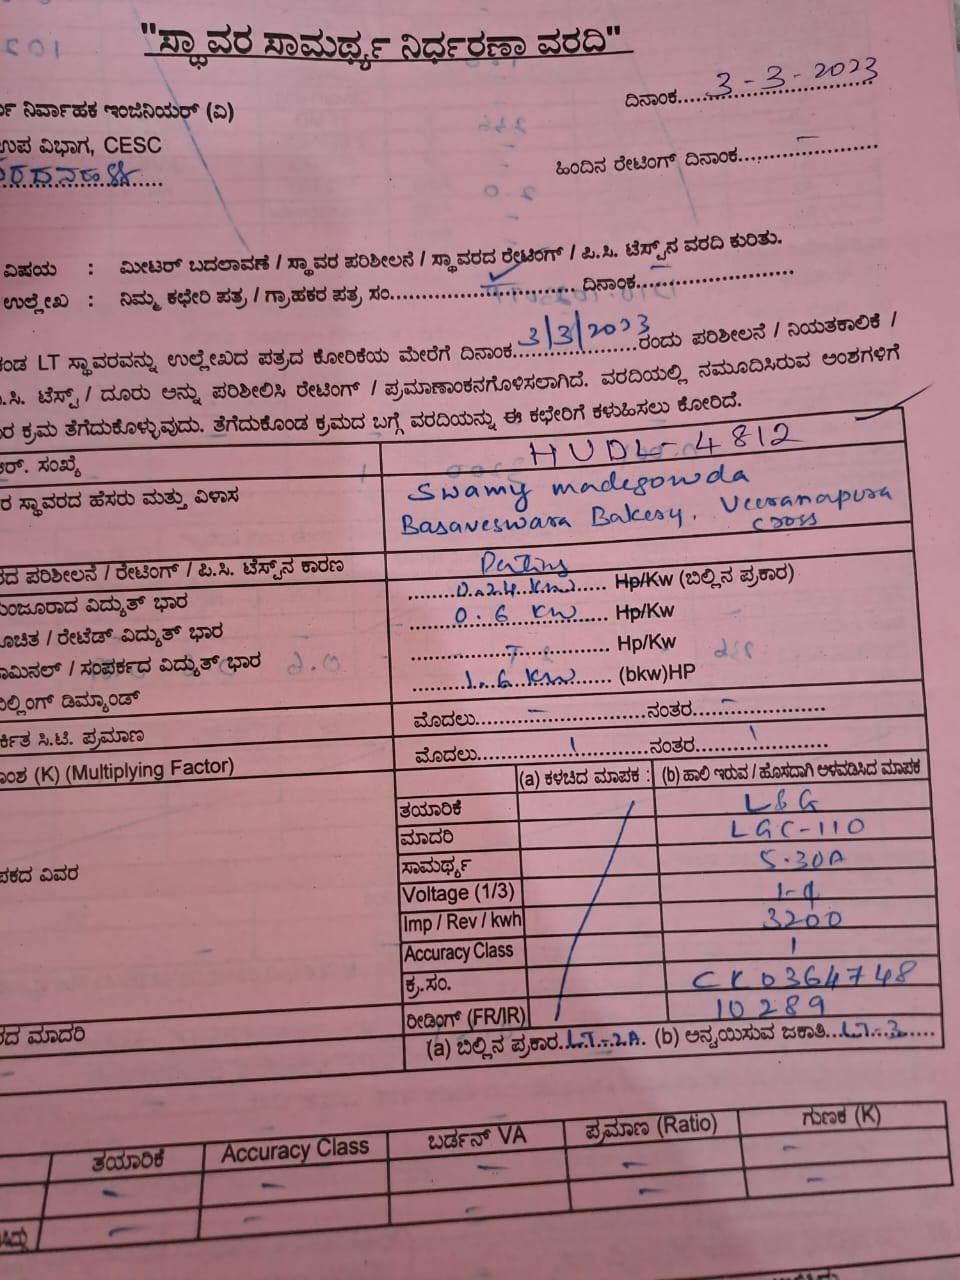 "ಸ್ಥಾವರ ಸಾಮರ್ಥ್ಯ ನಿರ್ಧರಣಾ ವರದಿ"
ದಿನಾಂಕ....3-3-2023
ನಿರ್ವಾಹಕ ಇಂಜಿನಿಯರ್ (ವಿ)
ಉಪ ವಿಭಾಗ, CESC
ಹಿಂದಿನ ರೇಟಿಂಗ್ ದಿನಾಂಕ.....–.....
ವಿಷಯ : ಮೀಟರ್ ಬದಲಾವಣೆ / ಸ್ಥಾವರ ಪರಿಶೀಲನೆ / ಸ್ಥಾವರದ ರೇಟಿಂಗ್ / ಪಿ.ಸಿ. ಟೆಸ್ಟ್‌ನ ವರದಿ ಕುರಿತು.
ಉಲ್ಲೇಖ : ನಿಮ್ಮ ಕಛೇರಿ ಪತ್ರ / ಗ್ರಾಹಕರ ಪತ್ರ ಸಂ..........ದಿನಾಂಕ..........
ಕಂಡ LT ಸ್ಥಾವರವನ್ನು ಉಲ್ಲೇಖದ ಪತ್ರದ ಕೋರಿಕೆಯ ಮೇರೆಗೆ ದಿನಾಂಕ...3/3/2023...ರಂದು ಪರಿಶೀಲನೆ / ನಿಯತಕಾಲಿಕೆ /
.ಸಿ. ಟೆಸ್ಟ್ / ದೂರು ಅನ್ನು ಪರಿಶೀಲಿಸಿ ರೇಟಿಂಗ್ / ಪ್ರಮಾಣಾಂಕನಗೊಳಿಸಲಾಗಿದೆ. ವರದಿಯಲ್ಲಿ ನಮೂದಿಸಿರುವ ಅಂಶಗಳಿಗೆ
ರ ಕ್ರಮ ತೆಗೆದುಕೊಳ್ಳುವುದು. ತೆಗೆದುಕೊಂಡ ಕ್ರಮದ ಬಗ್ಗೆ ವರದಿಯನ್ನು ಈ ಕಛೇರಿಗೆ ಕಳುಹಿಸಲು ಕೋರಿದೆ.
ಆರ್. ಸಂಖ್ಯೆ HUDL-4812
ರ ಸ್ಥಾವರದ ಹೆಸರು ಮತ್ತು ವಿಳಾಸ Swamy madegowda
Basaveswara Bakery. Veeranapura
cross
ದ ಪರಿಶೀಲನೆ / ರೇಟಿಂಗ್ / ಪಿ.ಸಿ. ಟೆಸ್ಟ್‌ನ ಕಾರಣ
ಮಂಜೂರಾದ ವಿದ್ಯುತ್ ಭಾರ ....0.24 KW.... Hp/Kw (ಬಿಲ್ಲಿನ ಪ್ರಕಾರ)
ಸೂಚಿತ / ರೇಟೆಡ್ ವಿದ್ಯುತ್ ಭಾರ ....0.6 KW.... Hp/Kw
ನಾಮಿನಲ್ / ಸಂಪರ್ಕದ ವಿದ್ಯುತ್ ಭಾರ ........ Hp/Kw
ಬಿಲ್ಲಿಂಗ್ ಡಿಮ್ಯಾಂಡ್ ....1.6 KW.... (bkw)HP
ಸಿ.ಟಿ. ಪ್ರಮಾಣ ಮೊದಲು....–....ನಂತರ....–....
(K) (Multiplying Factor) ಮೊದಲು....1....ನಂತರ....1....
(a) ಕಳಚಿದ ಮಾಪಕ : (b) ಹಾಲಿ ಇರುವ / ಹೊಸದಾಗಿ ಅಳವಡಿಸಿದ ಮಾಪಕ
ಮಾಪಕದ ವಿವರ
ತಯಾರಿಕೆ L&G
ಮಾದರಿ LGC-110
ಸಾಮರ್ಥ್ಯ 5-30A
Voltage (1/3)
Imp / Rev / kwh 3200
Accuracy Class 1
ಕ್ರ.ಸಂ. CK0364748
ರೀಡಿಂಗ್ (FR/IR) 10289
ದ ಮಾದರಿ (a) ಬಿಲ್ಲಿನ ಪ್ರಕಾರ..LT-2A. (b) ಅನ್ವಯಿಸುವ ಜಕಾತಿ...LT-3.....
ತಯಾರಿಕೆ Accuracy Class ಬರ್ಡನ್ VA ಪ್ರಮಾಣ (Ratio) ಗುಣಕ (K)
– – – – –
– – – – –